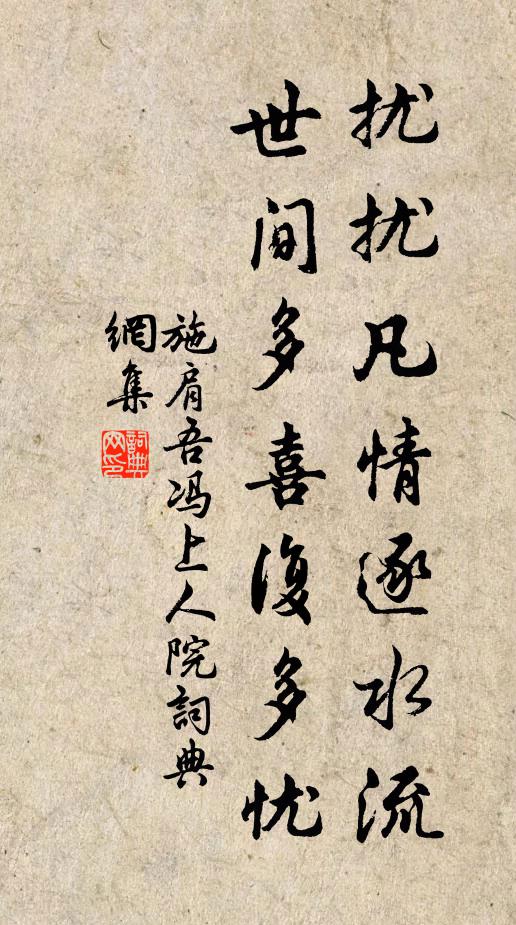 扰扰凡情逐水流
世间多喜復多忧
施肩吾冯上人院詞典
網集
詞典网印